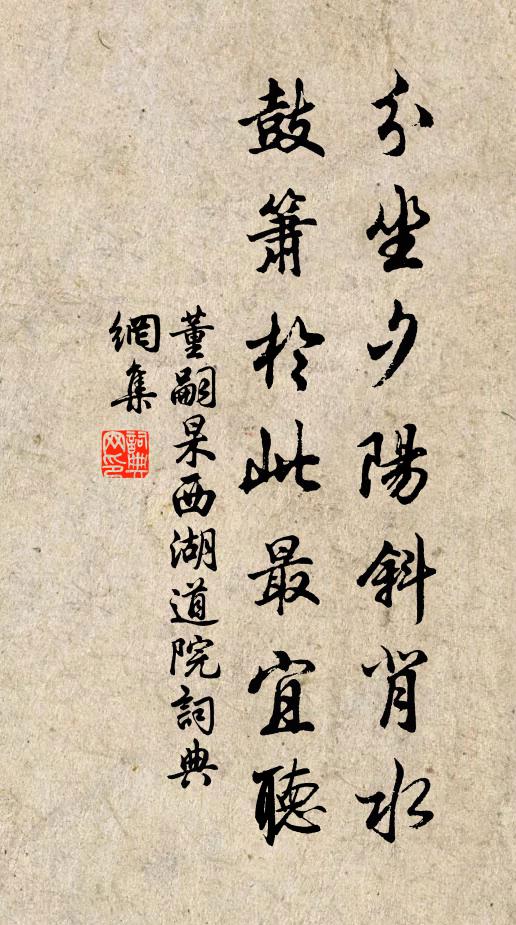 分坐夕陽斜背水
鼓簫於此最宜聽
董嗣杲西湖道院詞典
網集
詞典
网印